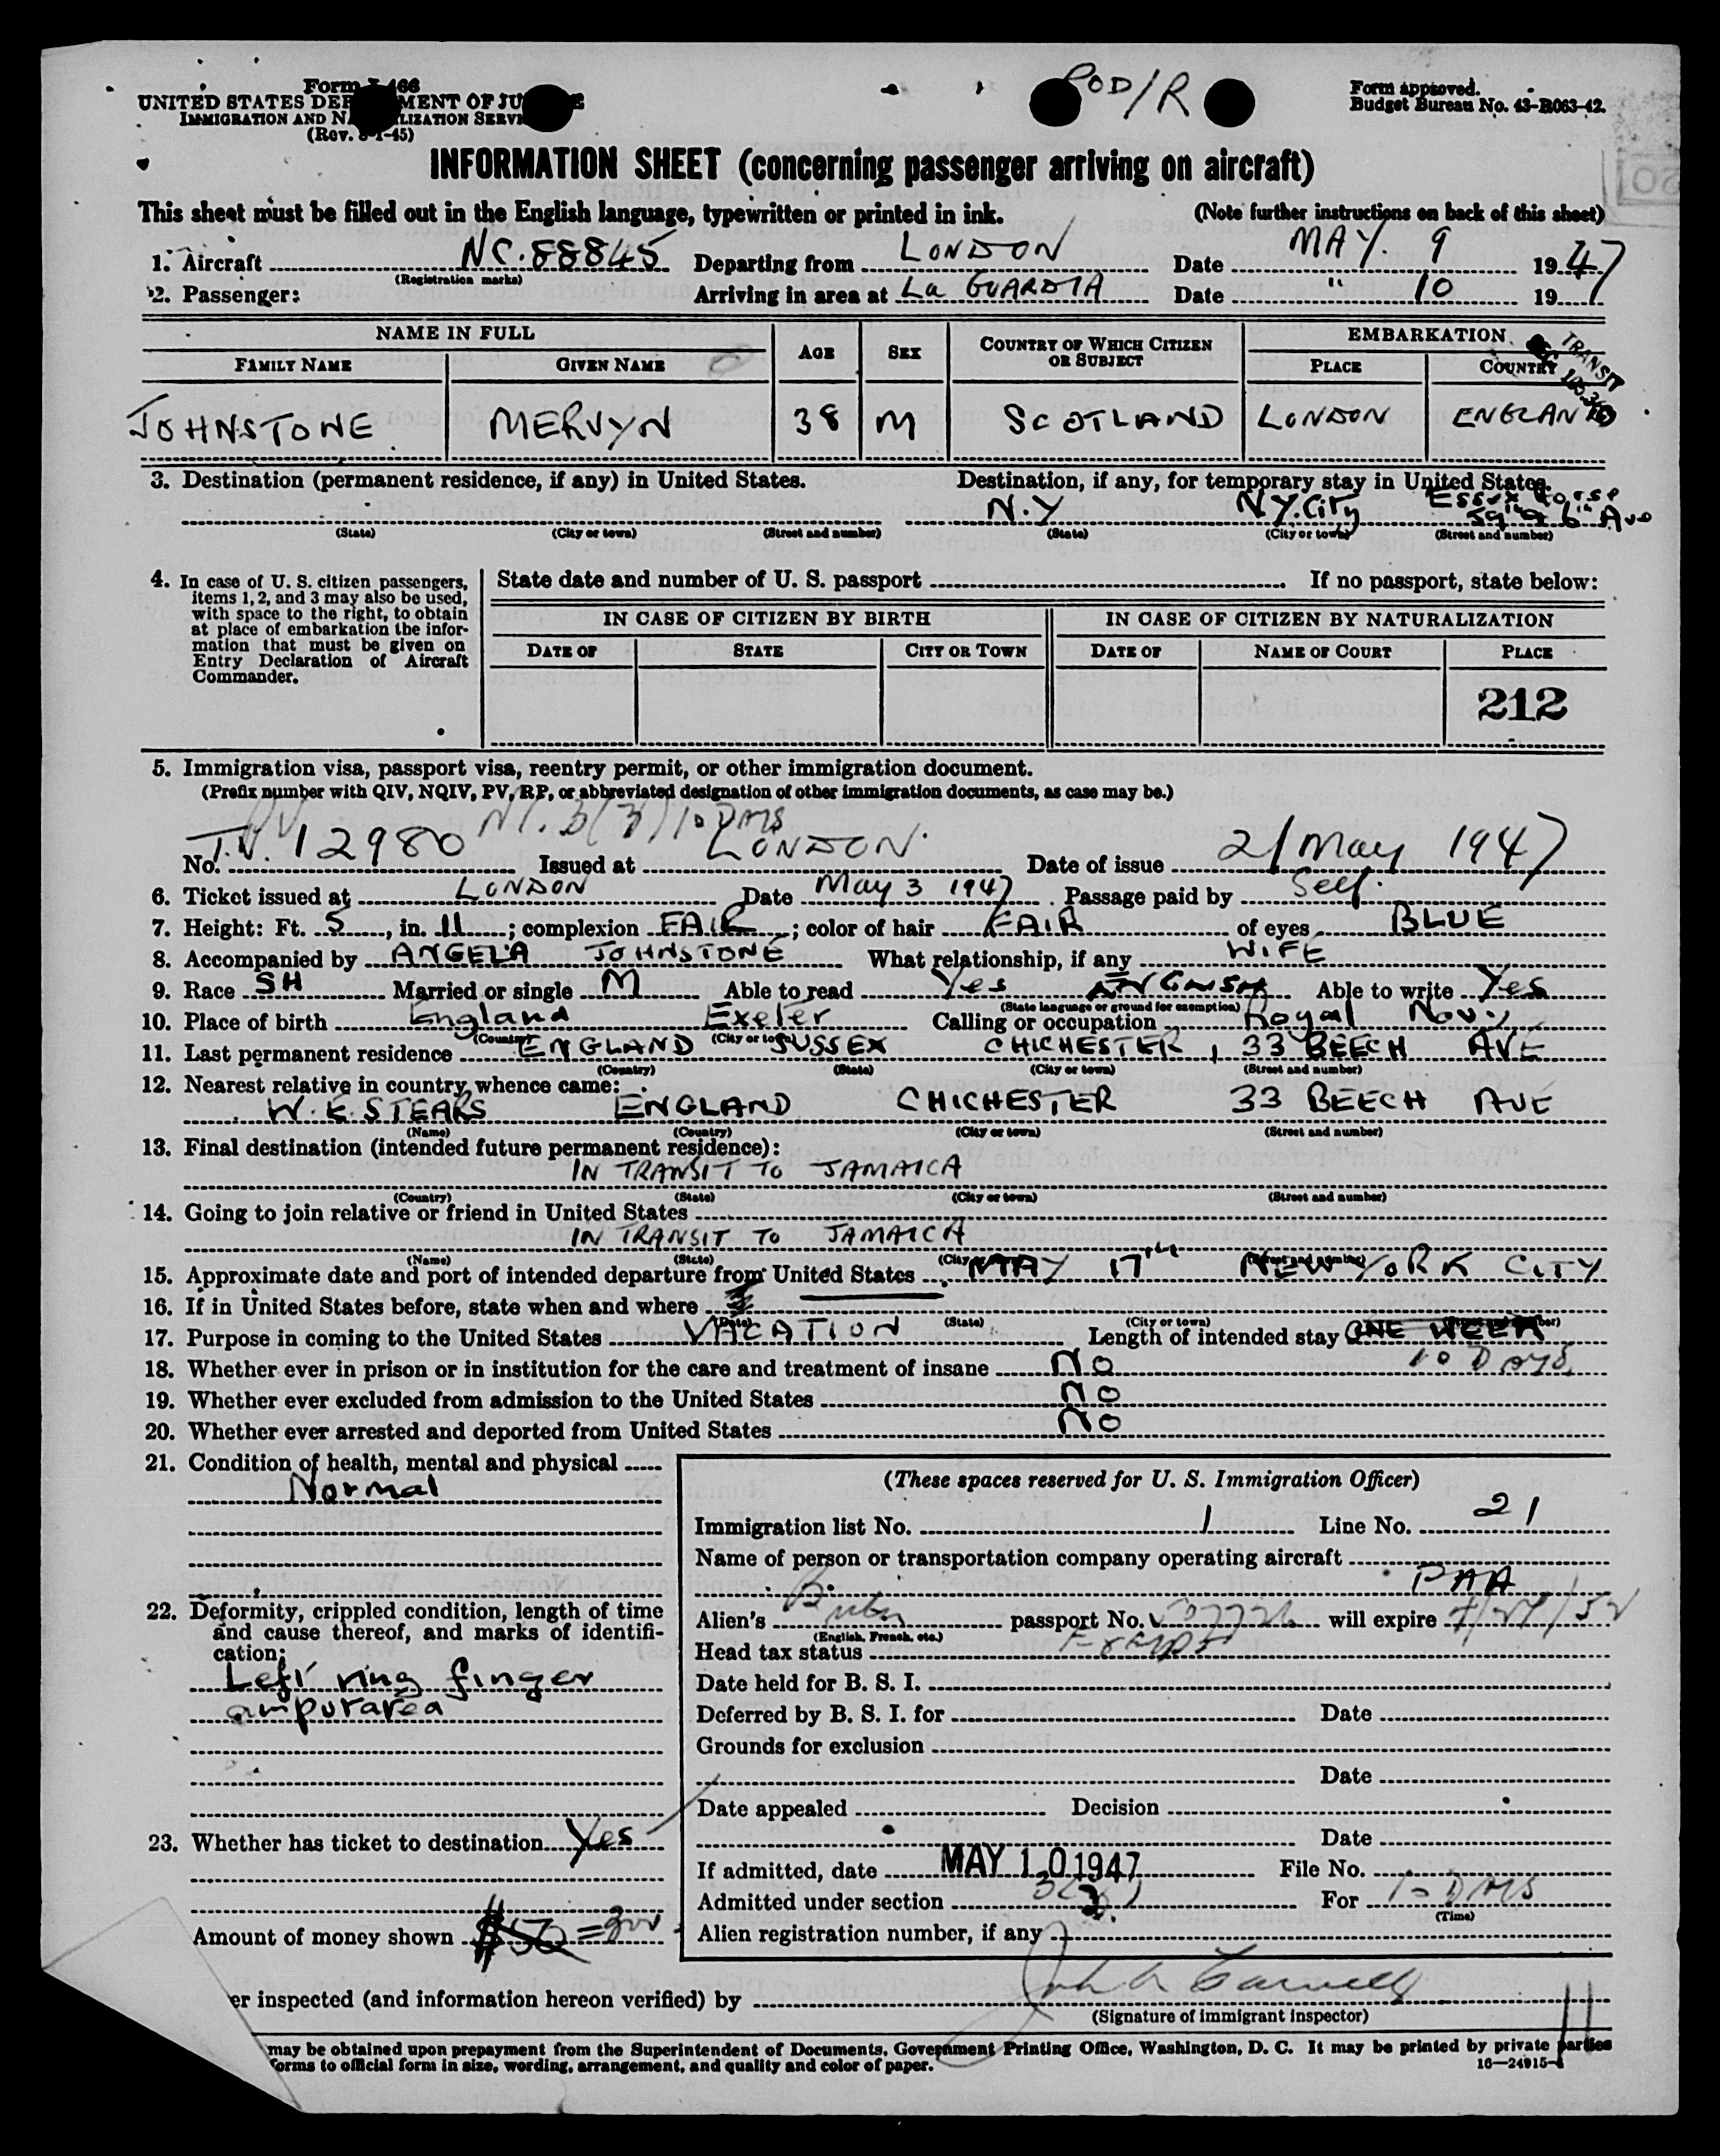 Form I-466
UNITED STATES DEP MENT OF JU E
IMMIGRATION AND NA LIZATION SERVI
(Rev. 8-1-45)
POD/R
Form approved.
Budget Bureau No. 43-R063-42.
INFORMATION SHEET (concerning passenger arriving on aircraft)
This sheet must be filled out in the English language, typewritten or printed in ink. (Note further instructions on back of this sheet)
1. Aircraft NC.88845 Departing from LONDON Date MAY. 9 1947
(Registration marks)
2. Passenger: Arriving in area at La GUARDIA Date " 10 197
NAME IN FULL AGE SEX COUNTRY OF WHICH CITIZEN OR SUBJECT EMBARKATION
FAMILY NAME GIVEN NAME PLACE COUNTRY
TRANSIT
JOHNSTONE MERVYN 38 M SCOTLAND LONDON ENGLAND
3. Destination (permanent residence, if any) in United States. Destination, if any, for temporary stay in United States.
N.Y N.Y. City Essex House 59th 6th Ave
(State) (City or town) (Street and number) (State) (City or town) (Street and number)
4. In case of U. S. citizen passengers, items 1, 2, and 3 may also be used, with space to the right, to obtain at place of embarkation the information that must be given on Entry Declaration of Aircraft Commander.
State date and number of U. S. passport If no passport, state below:
IN CASE OF CITIZEN BY BIRTH IN CASE OF CITIZEN BY NATURALIZATION
DATE OF STATE CITY OR TOWN DATE OF NAME OF COURT PLACE
212
5. Immigration visa, passport visa, reentry permit, or other immigration document.
(Prefix number with QIV, NQIV, PV, RP, or abbreviated designation of other immigration documents, as case may be.)
PV 10 DAYS
No. T.V. 12980 Issued at LONDON. Date of issue 2/May 1947
6. Ticket issued at LONDON Date May 3 1947 Passage paid by Self.
7. Height: Ft. 5, in. 11; complexion FAIR; color of hair FAIR of eyes BLUE
8. Accompanied by ANGELA JOHNSTONE What relationship, if any WIFE
9. Race SH Married or single M Able to read Yes ENGLISH Able to write Yes
(State language or ground for exemption)
10. Place of birth England Exeter Calling or occupation Royal Navy
(Country) (City or town)
11. Last permanent residence ENGLAND SUSSEX CHICHESTER, 33 BEECH AVE
(Country) (State) (City or town) (Street and number)
12. Nearest relative in country whence came:
W. K. STEARS ENGLAND CHICHESTER 33 BEECH AVE
(Name) (Country) (City or town) (Street and number)
13. Final destination (intended future permanent residence):
IN TRANSIT TO JAMAICA
(Country) (State) (City or town) (Street and number)
14. Going to join relative or friend in United States
IN TRANSIT TO JAMAICA
(Name) (State) (City (Street and number)
15. Approximate date and port of intended departure from United States MAY 17th NEW YORK CITY
16. If in United States before, state when and where
(Date) (State) (City or town) (Street and number)
17. Purpose in coming to the United States VACATION Length of intended stay ONE WEEK
10 Days
18. Whether ever in prison or in institution for the care and treatment of insane No
19. Whether ever excluded from admission to the United States No
20. Whether ever arrested and deported from United States No
21. Condition of health, mental and physical
Normal
22. Deformity, crippled condition, length of time and cause thereof, and marks of identification:
Left ring finger
amputated
23. Whether has ticket to destination Yes
Amount of money shown $50 = 300
(These spaces reserved for U. S. Immigration Officer)
Immigration list No. 1 Line No. 21
Name of person or transportation company operating aircraft
PAA
Alien's passport No. will expire
(English, French, etc.)
Head tax status Exempt
Date held for B. S. I.
Deferred by B. S. I. for Date
Grounds for exclusion
Date
Date appealed Decision
Date
If admitted, date MAY 10 1947 File No.
Admitted under section For 10 DAYS
(Time)
Alien registration number, if any
er inspected (and information hereon verified) by
(Signature of immigrant inspector)
may be obtained upon prepayment from the Superintendent of Documents, Government Printing Office, Washington, D. C. It may be printed by private parties
forms to official form in size, wording, arrangement, and quality and color of paper. 16—24915-1